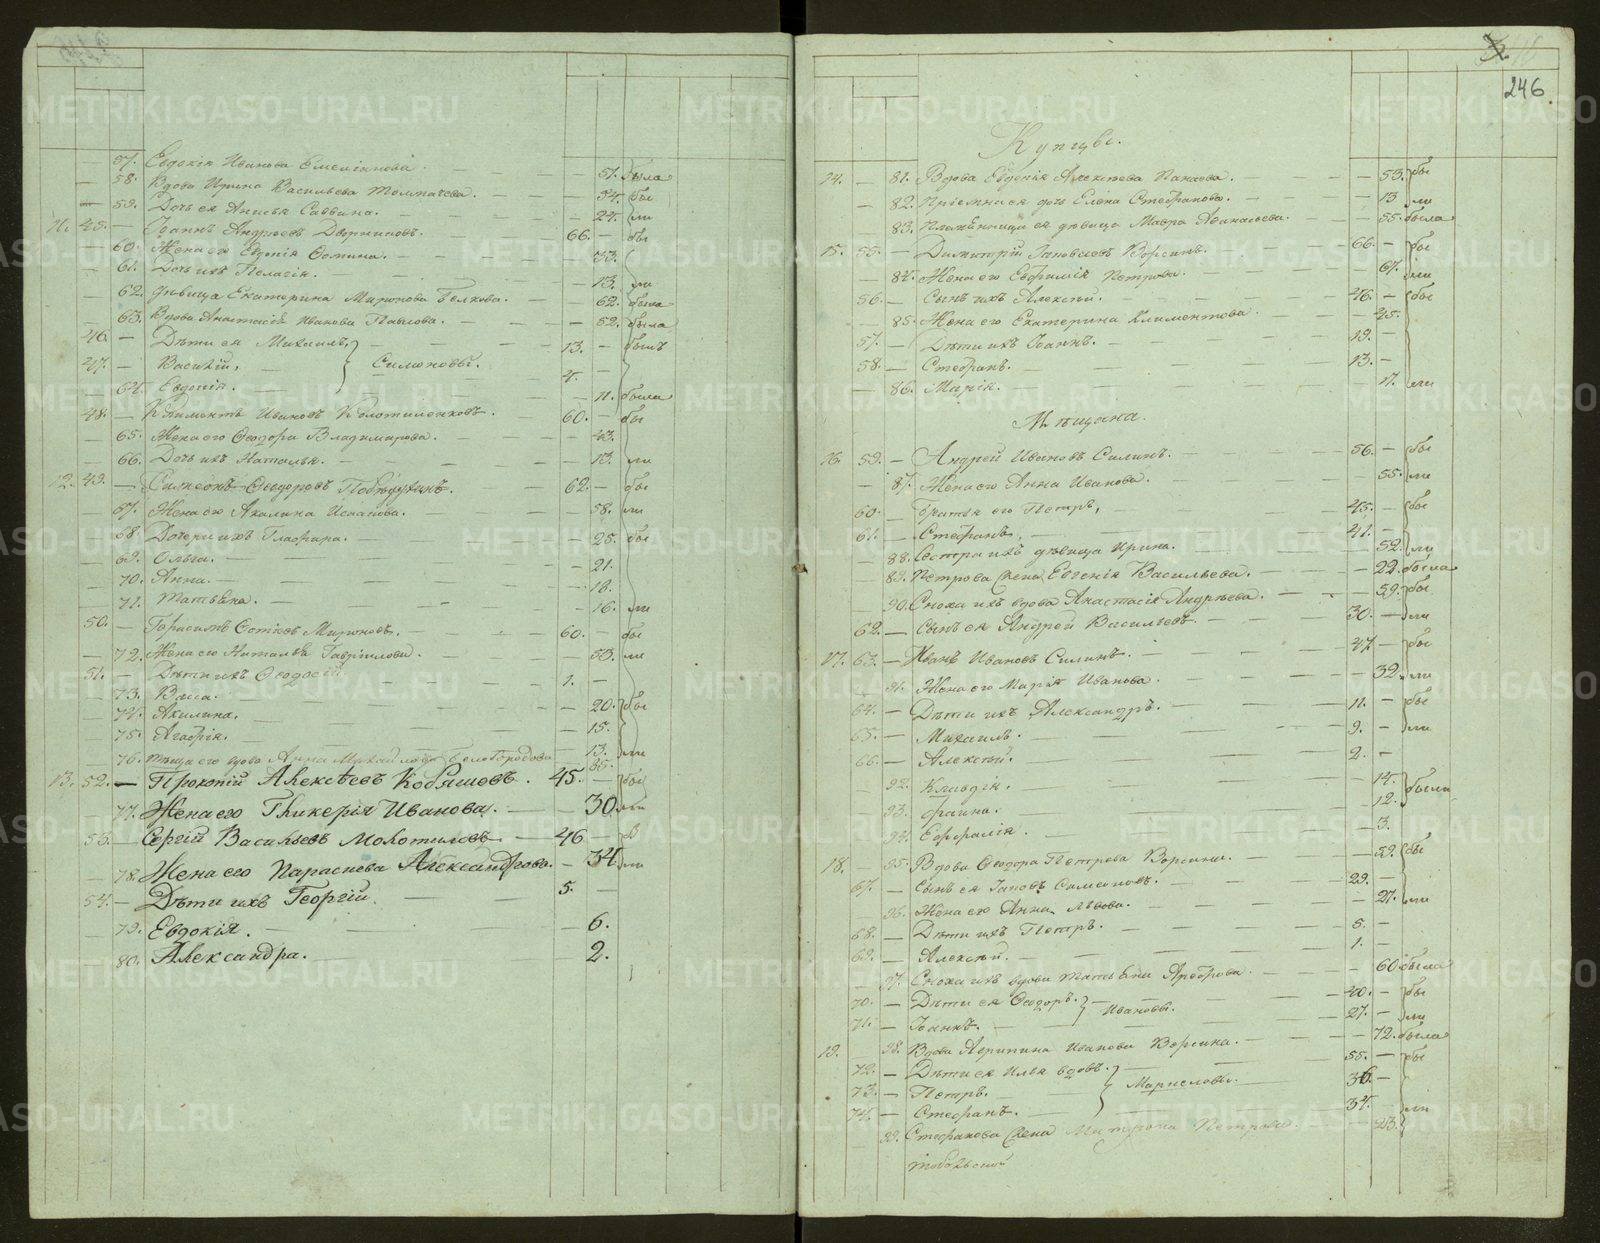 57. Евдокія Иванова Емельянова. — 51. была
58. Вдова Ирина Васильева Толмачева. — 54. бы
59. Дочь ея Анисья Саввина. — 24. ли
11. 45. — Іоаннъ Андреевъ Дворниковъ. 66. — бы
60. Жена его Евдокія 53.
61. Дочь ихъ Пелагія. — 13. ли
62. Дѣвица Екатерина Миронова Белкова. — 62. была
63. Вдова Анастасія Иванова Павлова. — 52. была
46. — Дѣти ея Михаилъ, 13. — былъ
47. — Василій, Симоновы. —
64. Евдокія. — 11. была
48. — Климентъ Ивановъ Колотиленковъ. 60. — бы
65. Жена его Ѳеодора Владимирова. — 43.
66. Дочь ихъ Наталья. — 13. ли
12. 49. — Симеонъ Ѳеодоровъ 62. — бы
67. Жена его Акилина Исаакова. — 58. ли
68. Дочери ихъ Глафира. — 25. бы
69. Ольга. — 21.
70. Анна. — 18.
71. Татьяна. — 16. ли
50. — Герасимъ Мироновъ. 60. — бы
72. Жена его Наталья Гавріилова. — 53. ли
51. — Дѣти ихъ Ѳеодосій 1. —
73. Васса. — 20. бы
74. Акилина. — 15.
75. Агафія. — 13. ли
76. Теща его вдова Анна Михайлова Белобородова 85.
13. 52. — Прокопій Алексѣевъ Кобяшовъ. 45. — бы
77. Жена его Гликерія Иванова. — 30. ли
53. Сергій Васильевъ Молотиловъ 46 — б
78. Жена его Параскева Александрова. — 34. ли
54. — Дѣти ихъ Георгій. 5. —
79. Евдокія. — 6.
80. Александра. 2.
246
Купцы.
14. — 81. Вдова Евдокія Алексѣева Панаева. — 53. бы
82. Пріемная ея дочь Елена Стефанова. — 13 ли
83. Племянница ея дѣвица Мавра Аѳанасьева. — 55. была
15. 55. — Димитрій Іаковлевъ Ворсинъ. 66. — бы
84. Жена его Евфимія Петрова. — 67. ли
56. — Сынъ ихъ Алексѣй. 46. — бы
85. Жена его Екатерина Климентова — 45.
57. — Дѣти ихъ Іоаннъ. 19. —
58. — Стефанъ. 13. —
86. Марія. 17. ли
Мѣщане.
16. 59. — Андрей Ивановъ Силинъ. 56. — бы
87. Жена его Анна Иванова. — 55. ли
60. — Братья его Петръ, 45. — бы
61. — Стефанъ. 41. —
88. Сестра ихъ дѣвица Ирина. — 52. ли
89. Петрова жена Евгенія Васильева. — 22. была
90. Сноха ихъ вдова Анастасія Андрѣева. — 59. бы
62. — Сынъ ея Андрей Васильевъ. 30. — ли
17. 63. — Иванъ Ивановъ Силинъ. 47 — бы
91. Жена его Марія Иванова. — 32. ли
64. — Дѣти ихъ Александръ. 11. — бы
65. — Михаилъ. 9. — ли
66. — Алексѣй. 2. —
92. Клавдія. — 14. были
93. Фаина. — 12.
94. Евфалія. — 3.
18. 95. Вдова Ѳеодора Петрова Ворсина. — 59. бы
67. — Сынъ ея Іаковъ Симеоновъ. 29. —
96. Жена его Анна Львова. — 27. ли
68. — Дѣти ихъ Петръ. 5. —
69. — Алексѣй. 1. —
97. Сноха ихъ вдова Татьяна — 60 была
70. — Дѣти ея Ѳеодоръ. Ивановы. 40. — бы
71. — Іоаннъ. 27. — ли
19. 98. Вдова Агрипина Иванова Ворсина. — 72. была
72. — Дѣти ея Илья вдовъ. 55. — бы
73. — Петръ. 36. —
74. — Стефанъ. 34. ли
99. Стефанова жена Матрона Петрова 43.